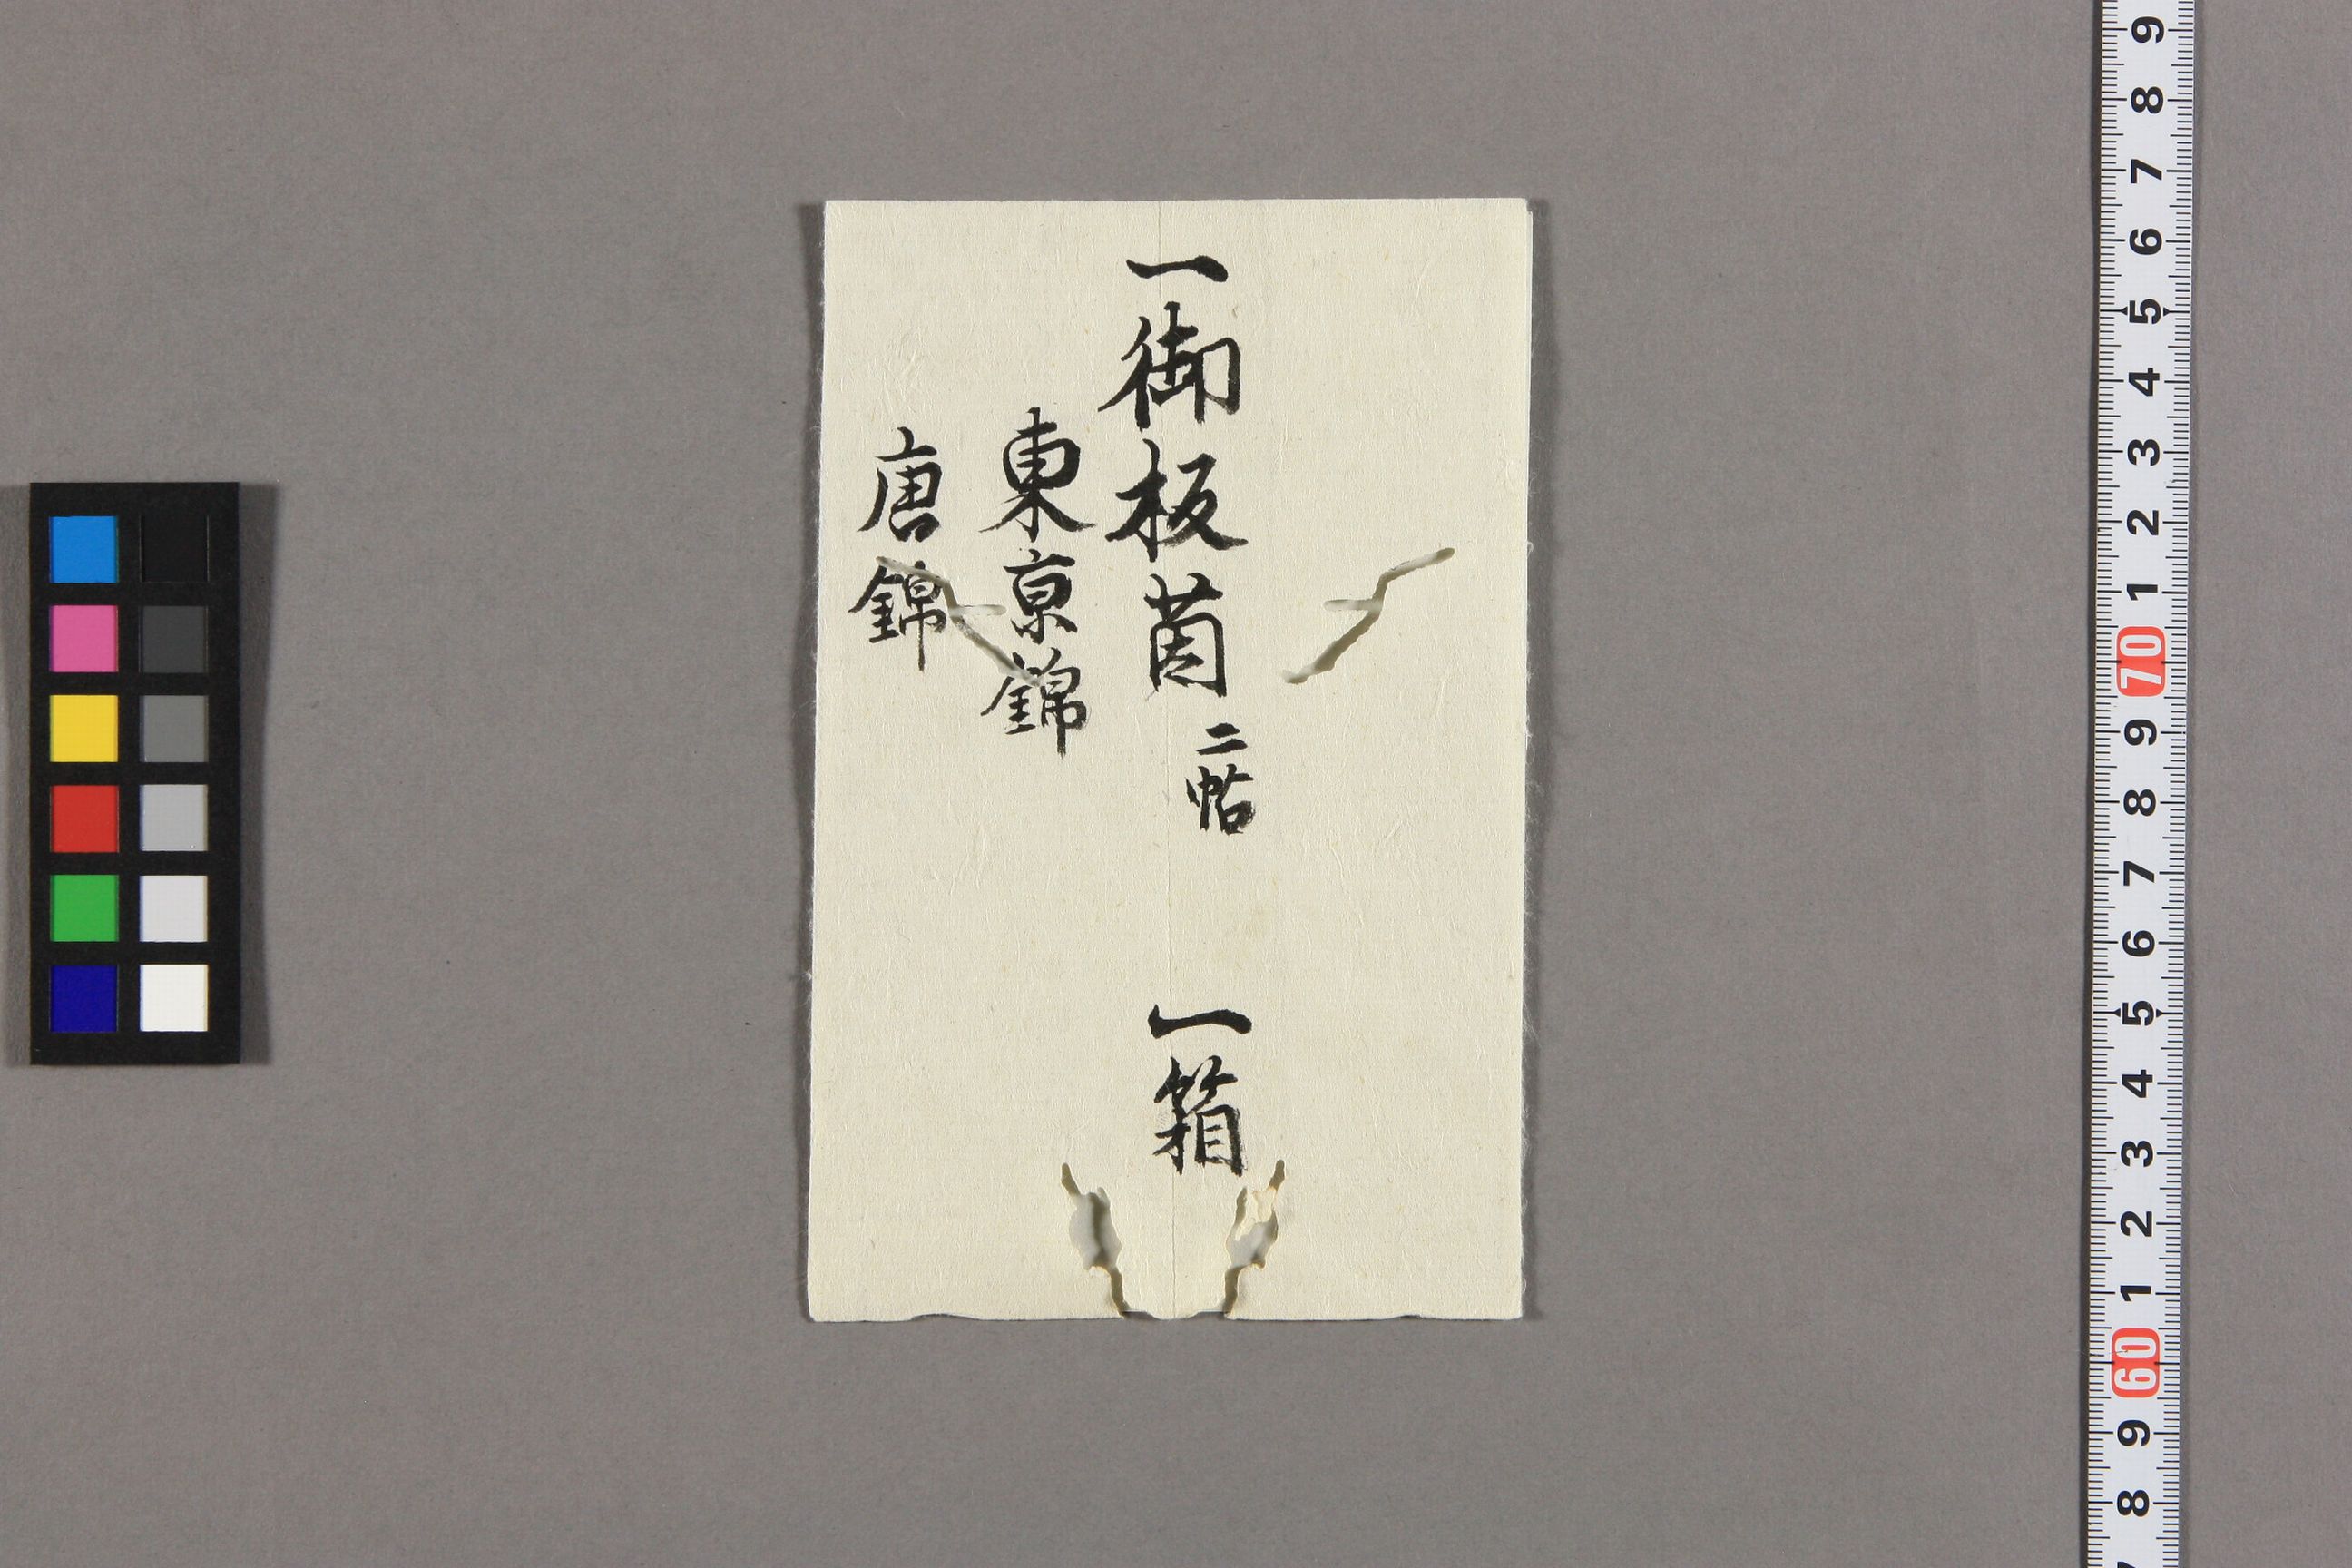 一御板茵二帖 一箱
東京錦
唐錦
9
8
7
6
5
4
3
2
1
70
9
8
7
6
5
4
3
2
1
60
9
8